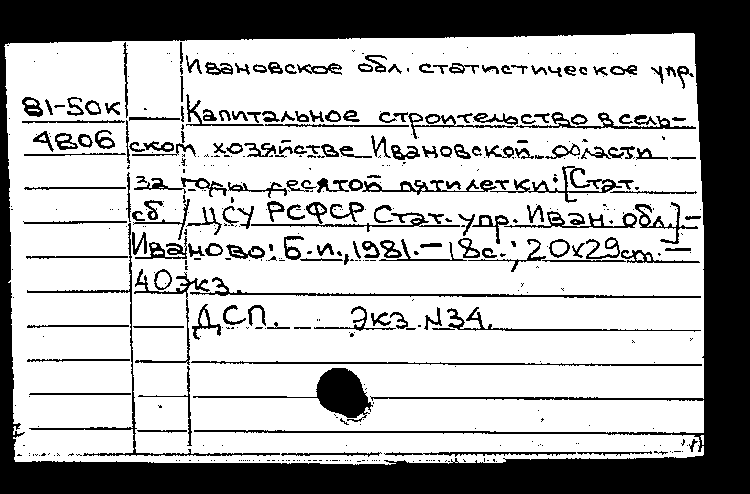 Ивановское обл. статистическое упр.
81-50к Капитальное строительство в сель-
4806 ском хозяйстве Ивановской области
за годы десятой пятилетки: [Стат.
сб. / ЦСУ РСФСР, Стат. упр. Иван. обл.] –
Иваново: Б.и., 1981. – 18с.; 20х29см. –
40экз.
ДСП. Экз. N34.